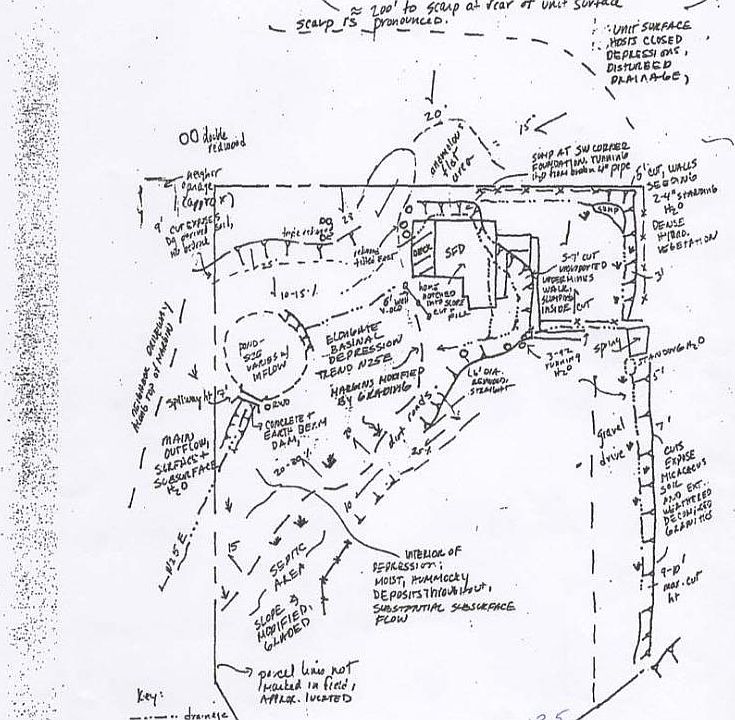 ≈ 200' to scarp at rear of unit surface
scarp is pronounced.
UNIT SURFACE
HOSTS CLOSED
DEPRESSIONS,
DISTURBED
DRAINAGE,
20
15°
double
redwood
anomalous
flat
area
SUMP AT SW CORNER
FOUNDATION, RUNNING
H₂O from broken 4" pipe
5' CUT, WALLS
SEEPING
2-4" STANDING
H₂O
DENSE
HYDRO.
VEGETATION
neighbor
garage
(approx)
9'
CUT EXPOSES
Dg derived soil,
no bedrock
triple redwoods
23
25
SUMP
3'
DECK
SFD
5-7' CUT
UNSUPPORTED
UNDERMINES
WALK,
SLUMPING
INSIDE CUT
10-15%
6' well
home
notched
into slope
cut &
fill
NEIGHBOR DRIVEWAY
ALONG TOP OF MARGIN
POND-
SIZE
VARIES W/
INFLOW
ELONGATE
BASINAL
DEPRESSION
TREND N25E
MARGINS MODIFIED
BY GRADING
spring
STANDING H₂O
3-42
RUNNING
H₂O
6' DIA.
REDWOOD,
STRAIGHT
5'
7'
Spillway ht 7'
RWD
CONCRETE +
EARTH BERM
DAM,
MAIN
OUTFLOW,
SURFACE +
SUBSURFACE
H₂O
dirt roads.
20
25%
20-20%
gravel
drive
CUTS
EXPOSE
MICACEOUS
SOIL
AND EXT.
WEATHERED
DECOMPOSED
GRANITICS
10
15
N25E
SEPTIC
AREA
SLOPE IS
MODIFIED,
GRADED
INTERIOR OF
DEPRESSION:
MOIST, HUMMOCKY
DEPOSITS THROUGHOUT,
SUBSTANTIAL SUBSURFACE
FLOW
9-10'
max. cut
ht
parcel lines not
marked in field,
APPROX. LOCATED
Key:
drainage